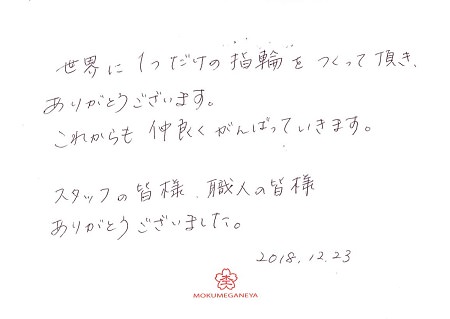 世界に1つだけの指輪をつくって頂き、
ありがとうございます。
これからも仲良くがんばっていきます。
スタッフの皆様、職人の皆様
ありがとうございました。
2018.12.23
杢
MOKUMEGANEYA